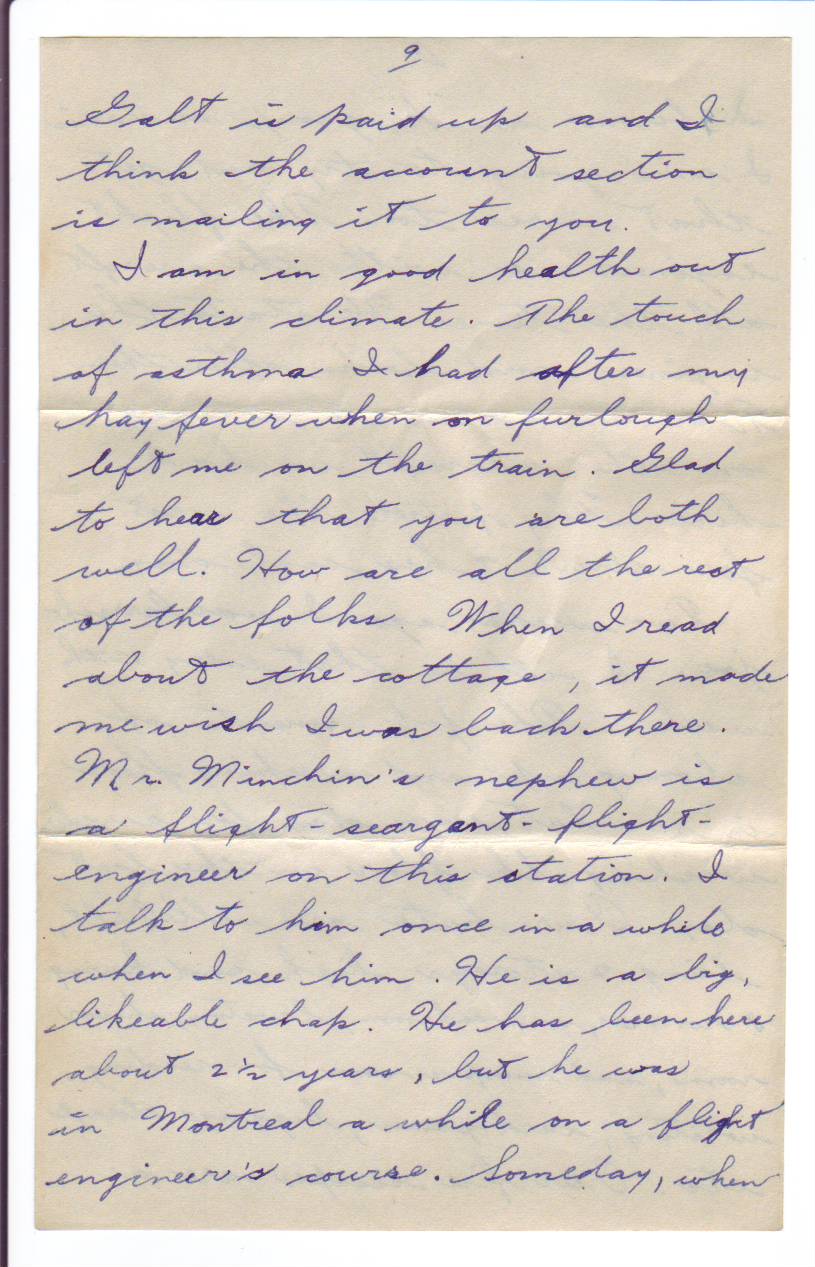 9
Galt is paid up and I
think the account section
is mailing it to you.
I am in good health out
in this climate. The touch
of asthma I had after my
hay fever when on furlough
left me on the train. Glad
to hear that you are both
well. How are all the rest
of the folks. When I read
about the cottage, it made
me wish I was back there.
Mr. Minchin's nephew is
a flight-seargent-flight-
engineer on this station. I
talk to him once in a while
when I see him. He is a big,
likeable chap. He has been here
about 2½ years, but he was
in Montreal a while on a flight
engineer's course. Someday, when